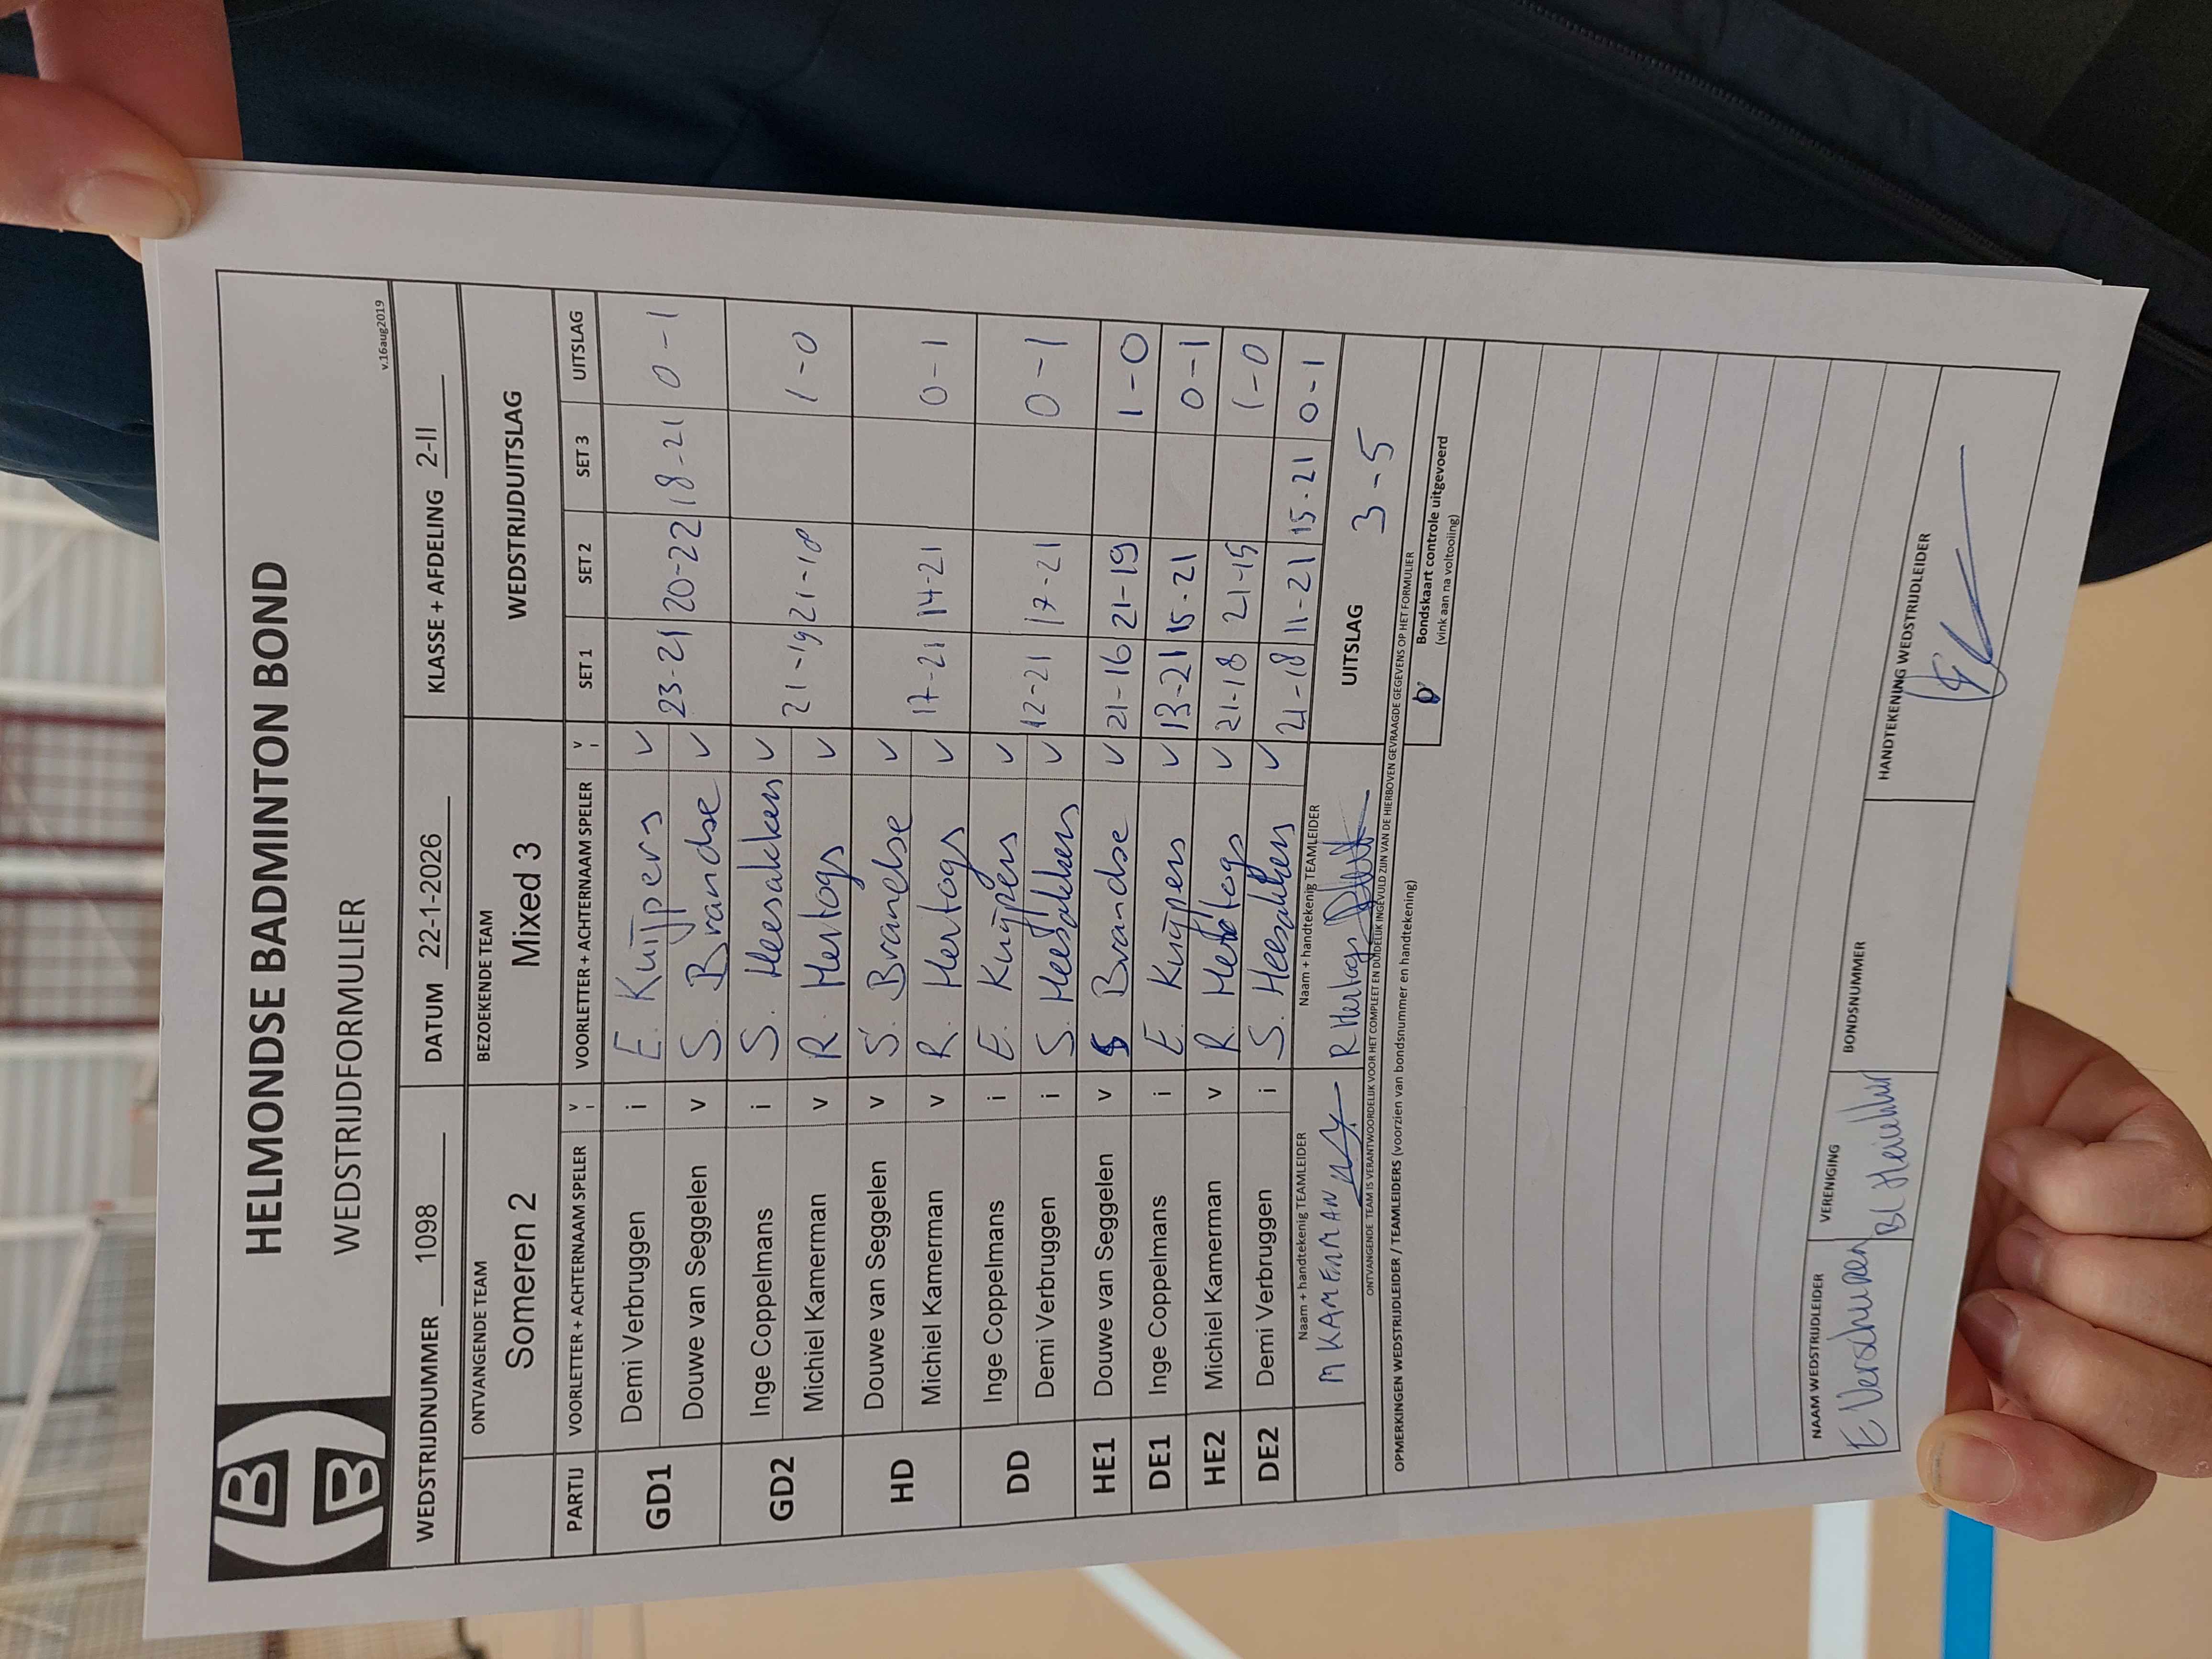 HELMONDSE BADMINTON BOND
WEDSTRIJDFORMULIER
v.16aug2019
WEDSTRIJDNUMMER 1098 DATUM 22-1-2026 KLASSE + AFDELING 2-II
ONTVANGENDE TEAM BEZOEKENDE TEAM WEDSTRIJDUITSLAG
Someren 2 Mixed 3
PARTIJ VOORLETTER + ACHTERNAAM SPELER V i VOORLETTER + ACHTERNAAM SPELER V i SET 1 SET 2 SET 3 UITSLAG
GD1 Demi Verbruggen i E. Kuijpers v
Douwe van Seggelen v S. Brandse v 23-21 20-22 18-21 0-1
GD2 Inge Coppelmans i S. Heesakkers v
Michiel Kamerman v R. Hertogs v 21-19 21-18 1-0
HD Douwe van Seggelen v S. Brandse v
Michiel Kamerman v R. Hertogs v 17-21 14-21 0-1
DD Inge Coppelmans i E. Kuijpers v
Demi Verbruggen i S. Heesakkers v 12-21 17-21 0-1
HE1 Douwe van Seggelen v S Brandse v 21-16 21-19 1-0
DE1 Inge Coppelmans i E. Kuijpers v 13-21 15-21 0-1
HE2 Michiel Kamerman v R. Hertogs v 21-18 21-15 1-0
DE2 Demi Verbruggen i S. Heesakkers v 21-18 11-21 15-21 0-1
Naam + handtekenig TEAMLEIDER Naam + handtekenig TEAMLEIDER
M KAMERMAN R Hertogs UITSLAG 3-5
ONTVANGENDE TEAM IS VERANTWOORDELIJK VOOR HET COMPLEET EN DUIDELIJK INGEVULD ZIJN VAN DE HIERBOVEN GEVRAAGDE GEGEVENS OP HET FORMULIER
OPMERKINGEN WEDSTRIJDLEIDER / TEAMLEIDERS (voorzien van bondsnummer en handtekening)
Bondskaart controle uitgevoerd
(vink aan na voltooiing)
NAAM WEDSTRIJDLEIDER VERENIGING BONDSNUMMER HANDTEKENING WEDSTRIJDLEIDER
E Verschuren BC